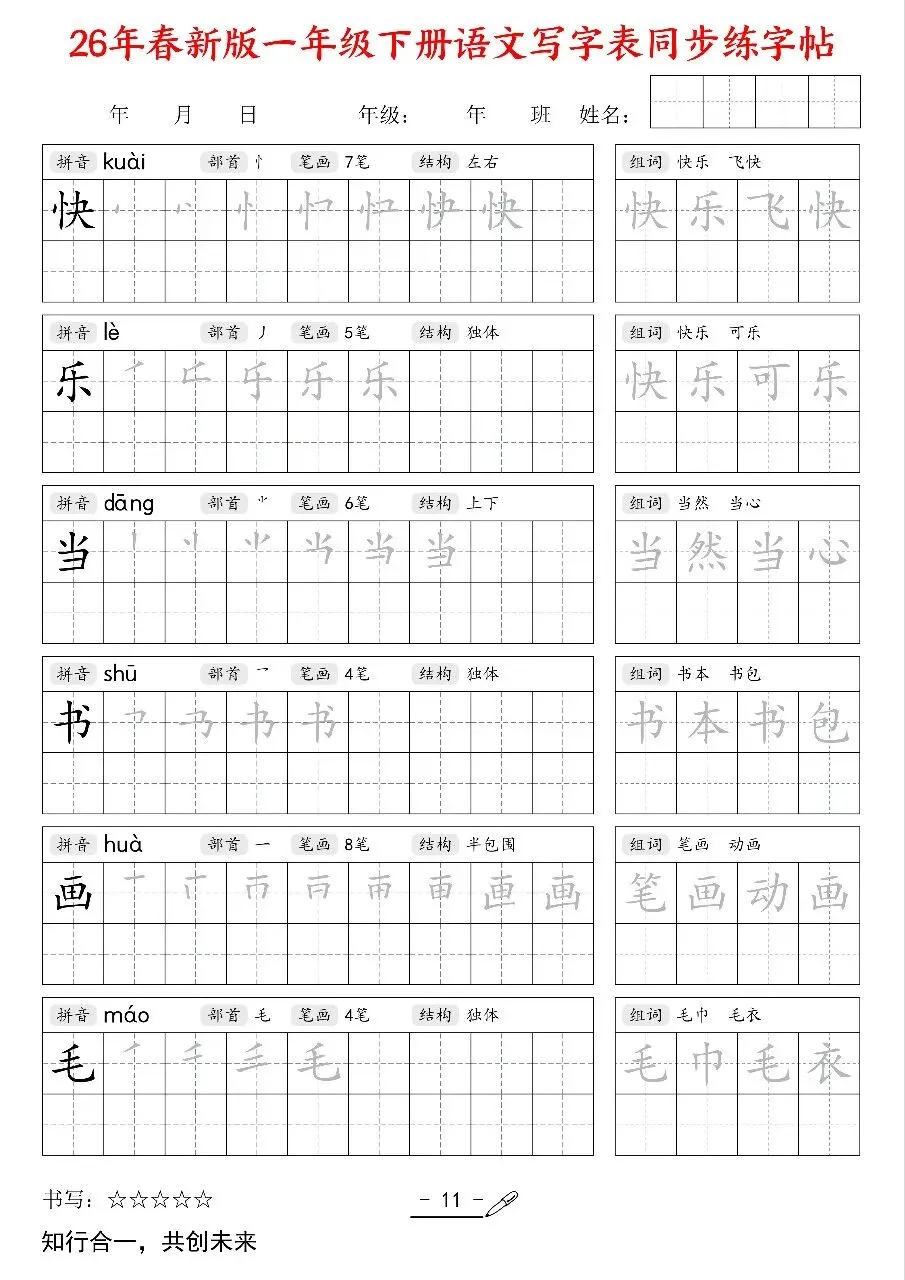 26年春新版一年级下册语文写字表同步练字帖
年 月 日 年级： 年 班 姓名：
拼音 kuài 部首 忄 笔画 7笔 结构 左右 组词 快乐 飞快
快 快 快 乐 飞 快
拼音 lè 部首 丿 笔画 5笔 结构 独体 组词 快乐 可乐
乐 乐 快 乐 可 乐
拼音 dāng 部首 ⺌ 笔画 6笔 结构 上下 组词 当然 当心
当 当 当 然 当 心
拼音 shū 部首 乛 笔画 4笔 结构 独体 组词 书本 书包
书 书 书 本 书 包
拼音 huà 部首 一 笔画 8笔 结构 半包围 组词 笔画 动画
画 画 笔 画 动 画
拼音 máo 部首 毛 笔画 4笔 结构 独体 组词 毛巾 毛衣
毛 毛 毛 巾 毛 衣
书写：☆☆☆☆☆ - 11 -
知行合一，共创未来